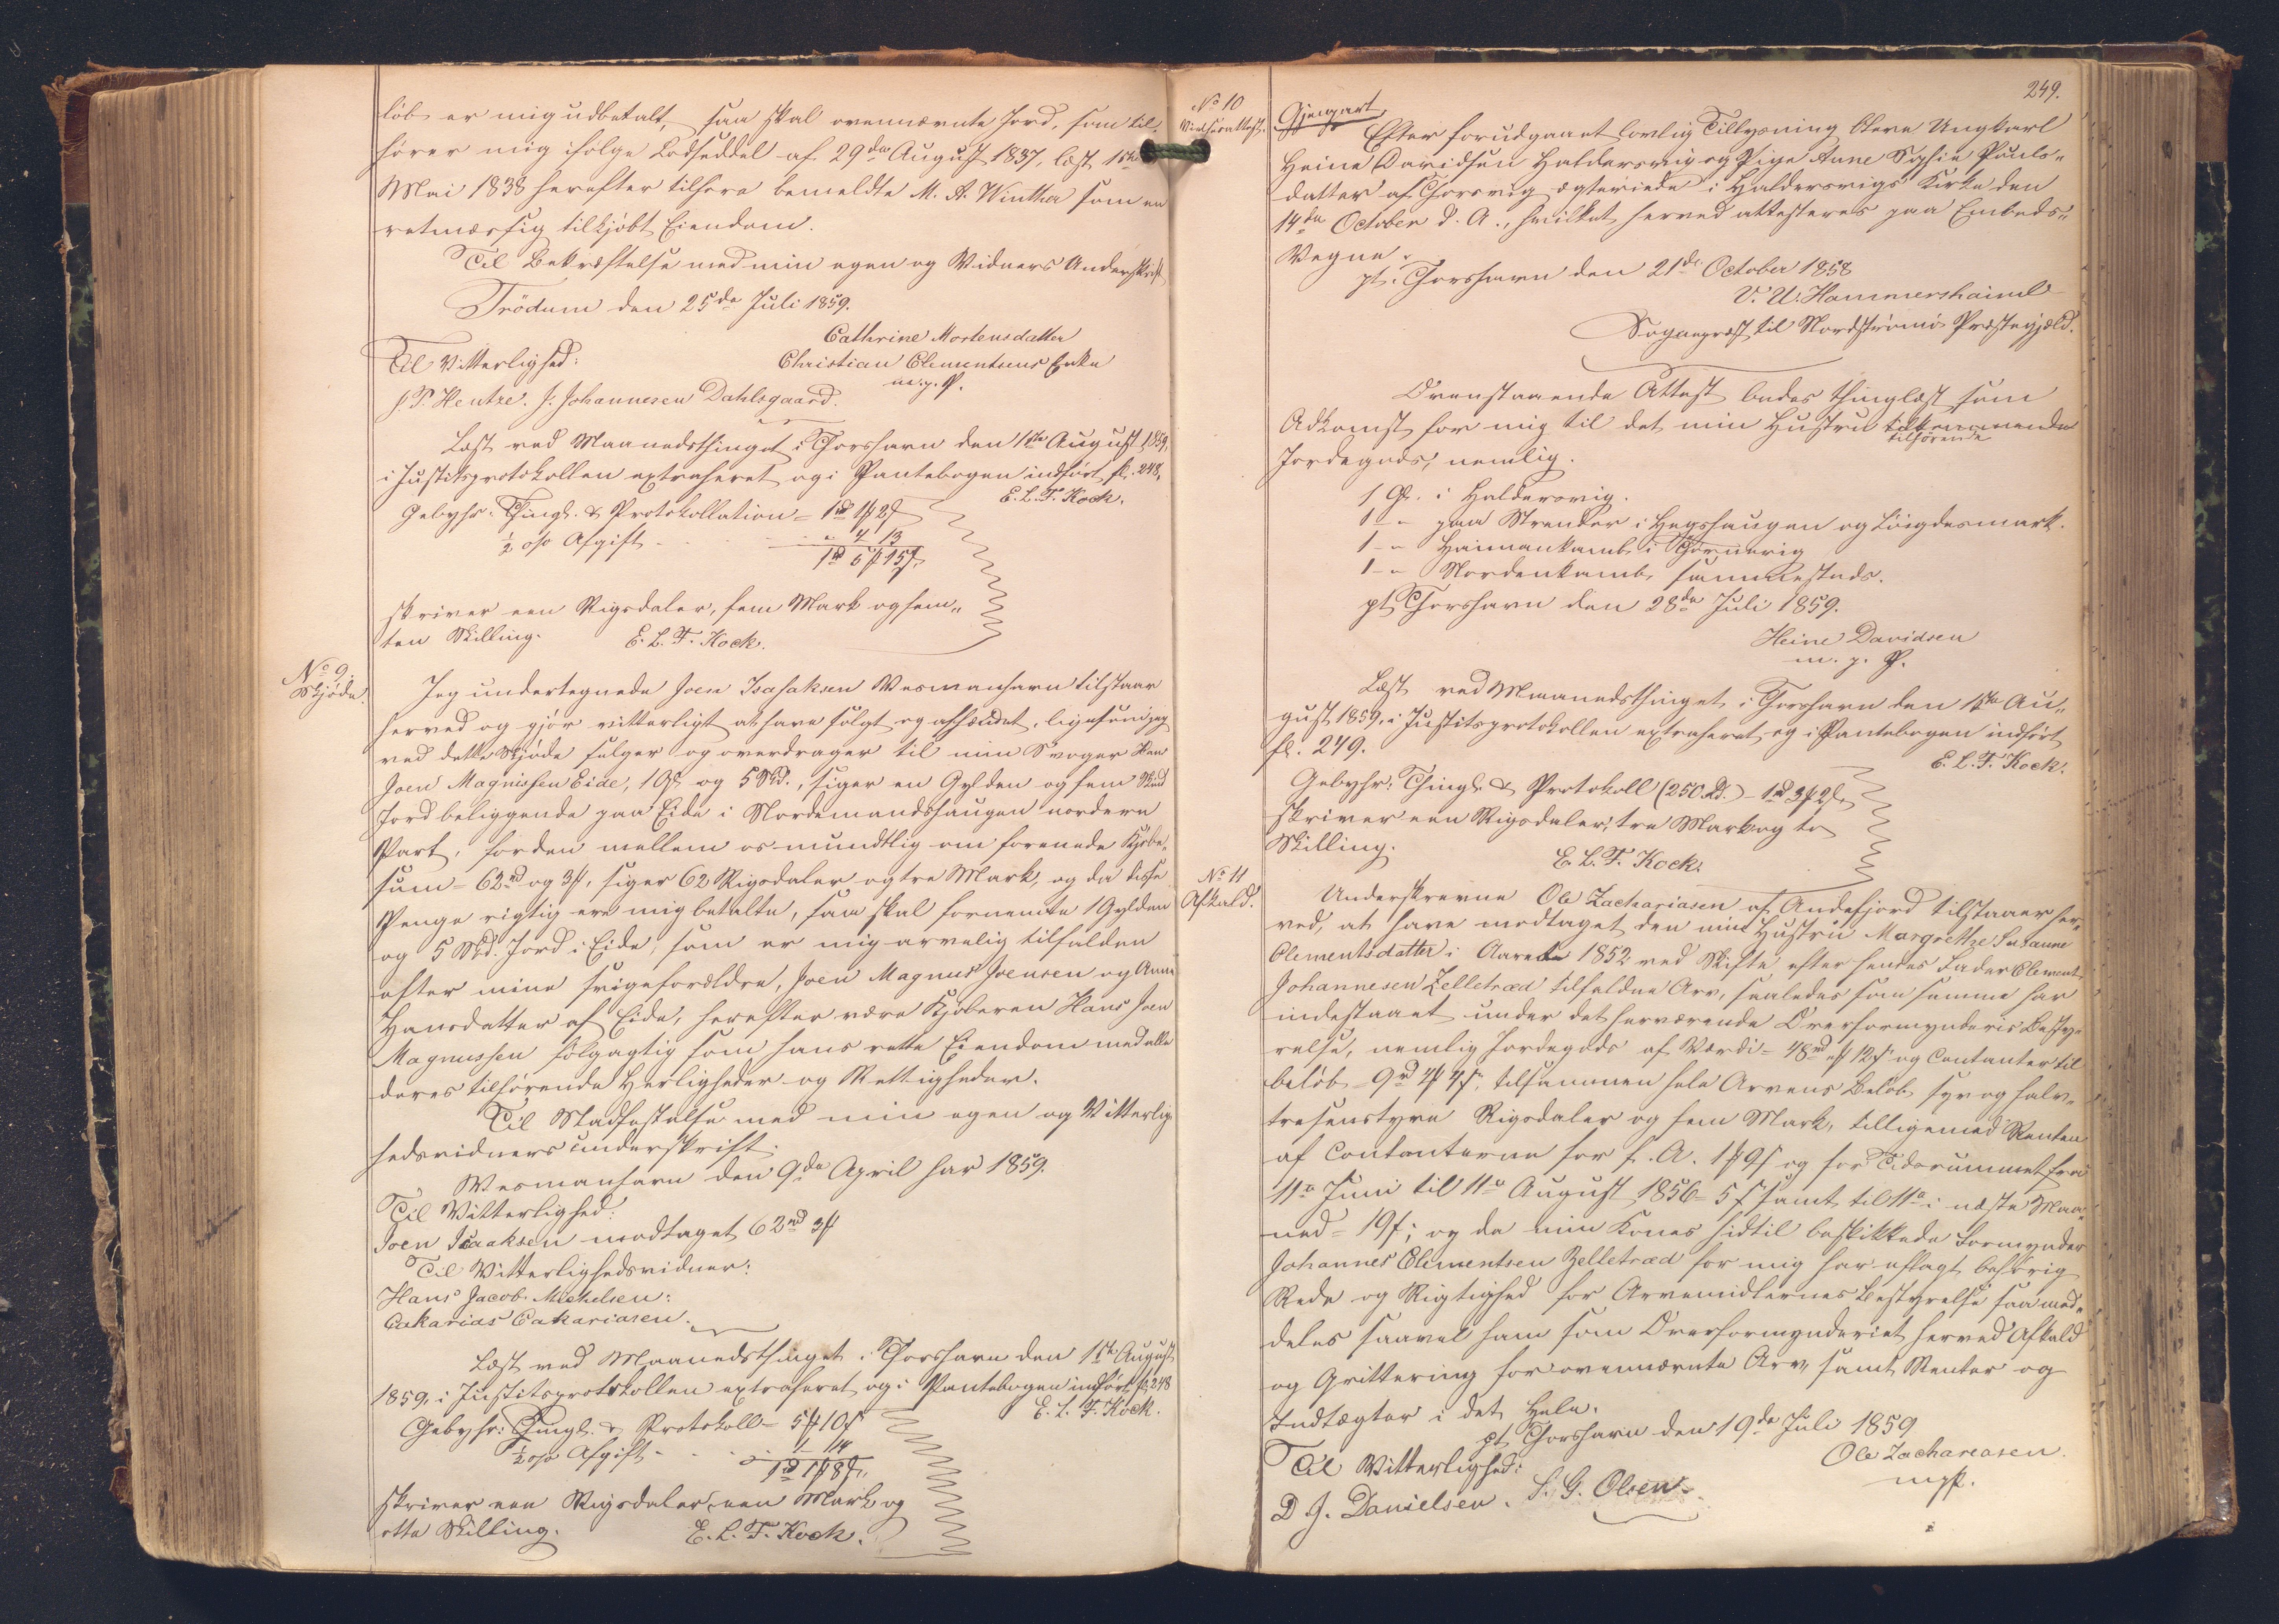 løb er mig udbetalt, saa skal ovennævnte Jord, som til-
hører mig ifølge Lodseddel af 29de August 1837, læst 1ste
Mai 1838 herefter tilhøre bemeldte M. A. Winther som en
retmæssig tilkjøbt Eiendom.
Til Bekræftelse med min egen og Vidners Underskrift
Trödum den 25de Juli 1859.
Cathrine Mortensdatter
Til Vitterlighed: Christian Clementsens Enke
m. p. P.
J. P. Hentze. J. Johannesen Dahlsgaard.
Læst ved Maanedsthinget i Thorshavn den 1ste August 1859,
i Justitsprotokollen extraheret og i Pantebogen indført fl. 248.
E. L. F. Kock.
Gebyhr: Thingl. & Protokollation = 1rd 1ɱ 2ß
½ o/o Afgift - - - " 4 13
1rd 5ɱ 15ß
skriver een Rigsdaler, fem Mark og fem„
ten Skilling. E. L. F. Kock.
No 9.
Skjøde.
Jeg undertegnede Joen Isaksen Wesmanhavn tilstaar
herved og gjør vitterligt at have solgt og afhændet, ligesom jeg
ved dette Skjøde sælger og overdrager til min Svoger Hans
Joen Magnussen Eide, 1 Gl. og 5 Skd., siger en Gylden og fem Skind
Jord beliggende paa Eide i Nordemandshaugen nordern
Part, for den mellem os mundtlig om forenede Kjøbe„
sum = 62rd og 3ɱ, siger 62 Rigsdaler og tre Mark, og da disse
Penge rigtig ere mig betalte, saa skal fornemte 1 Gylden
og 5 Skd. Jord i Eide, som er mig arvelig tilfalden
efter mine svigeforældre, Joen Magnus Joensen og Anne
Hansdatter af Eide, herefter være Kjøberen Hans Joen
Magnussen følgagtig som hans rette Eiendom med alle
deres tilhørende Herligheder og Rettigheder.
Til Stadfæstelse med min egen og Vitterlig
hedsvidners underskrift.
Wesmanhavn den 9de April har 1859.
Til Vitterlighed:
Joen Isaaksen modtaget 62rd 3ɱ
Til Vitterlighedsvidner:
Hans Jacob Michelsen:
Cakarias Cakariasen.
Læst ved Maanedsthinget i Thorshavn den 1ste August
1859, i Justitsprotokollen extraheret og i Pantebogen indført fl. 248
E. L. F. Kock.
Gebyhr: Thingl. & Protokoll = 5ɱ 10ß
½ o/o Afgift - - - 1 - 14
1rd 1ɱ 8ß
skriver een Rigsdaler, een Mark og
otte Skilling. E. L. F. Kock.
249.
No 10
Vielsesattest.
Gjenpart
Efter forudgaaet lovlig Tillysning bleve Ungkarl
Heine Davidsen Haldersvig og Pige Anne Sophie Pouls„
datter af Thorsvig ægteviede i Haldersvigs Kirke den
14de October d. A., hvilket herved attesteres paa Embeds„
Vegne.
pt. Thorshavn den 21de October 1858
V. U. Hammershaimb
Sognepræst til Nordstrømø Præstegjæld.
Ovenstaaende Attest bedes thinglæst som
Adkomst for mig til det min Hustru tilkommende
tilhørende
Jordegods, nemlig.
1 Gl. i Haldersvig.
1 - " paa Strender i Hegshaugen og Löigdesmark.
1 - " Heimankamb i Tjørnevig
1 - " Nordenkamb sammesteds.
pt Thorshavn den 28de Juli 1859.
Heine Davidsen
m. p. P.
Læst ved Maanedsthinget i Thorshavn den 1ste Au„
gust 1859, i Justitsprotokollen extraheret og i Pantebogen indført
fl. 249.
E. L. F. Kock.
Gebyhr: Thingl. & Protokoll (250 Rd.) = 1rd 3ɱ 2ß
skriver een Rigsdaler, tre Mark og to
Skilling.
E. L. F. Kock.
No 11
Afkald.
Underskrevne Ole Zachariasen af Andefjord tilstaaer her„
ved, at have modtaget den min Hustru Margrethe Susanne
Clementsdatter i Aaret 1852 ved Skifte efter hendes Fader Clement
Johannesen Zelletræd tilfaldne Arv, saaledes som samme har
indestaaet under det herværende Overformynderis Besty„
relse, nemlig Jordegods af Værdi = 48rd "ɱ 12ß og Contanter til
beløb = 9rd 4ɱ 4ß, tilsammen hele Arvens Beløb syv og halv„
tresenstyve Rigsdaler og fem Mark, tilligemed Renten
af Contanterne for f. A. 1ɱ 9ß og for Tidsrummet fra
11te Juni til 11te August 1856 = 5ß samt til 11te i næste Maa„
ned = 19ß; og da min Kones hidtil beskikkede Formynder
Johannes Clementsen Zelletræd for mig har aflagt behørig
Rede og Rigtighed for Arvemidlernes Bestyrelse saa med„
deles saavel ham som Overformynderiet herved Afkald
og Qvittering for ovennævnte Arv, samt Renter og
Indtægter i det Hele.
pt Thorshavn den 19de Juli 1859
Til Vitterlighed: Ole Zachareasen.
D J. Danielsen. S. G. Olsen. mp.